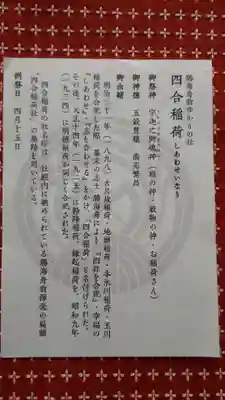 勝海舟ゆかりの社
四合稲荷 しあわせいなり
御祭神 宇迦之御魂神(稲の神・穀物の神・お稲荷さん)
御神徳 五穀豊穣 商売繁昌
御由緒
明治三十一年(一八九八)古呂故稲荷・地主稲荷・本氷川稲荷・玉川
稲荷を合祀した際、幕末の志士 勝海舟により「四社を合祀」・「幸福の
しあわせ」・「志を合わせる」をかけ、「四合稲荷」と名付けられた。
その後、大正十四年(一九二五)に鈴降稲荷、縁起稲荷が、昭和九年
(一九三四)に明徳稲荷が同じく合祀された。
四合稲荷の社名は、社殿内に納められている勝海舟揮毫の扁額
「四合稲荷社」の墨跡を用いている。
例祭日 四月十五日